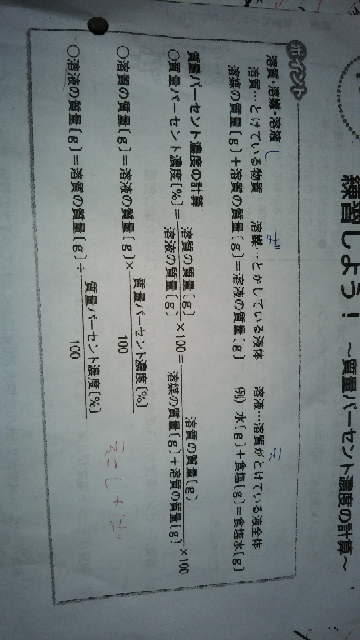 練習しよう！ ～質量パーセント濃度の計算～
ポイント
溶質・溶媒・溶液
溶質…とけている物質 溶媒…とかしている液体 溶液…溶質がとけている液全体
溶媒の質量[g]+溶質の質量[g]=溶液の質量[g] 例) 水[g]+食塩[g]=食塩水[g]
質量パーセント濃度の計算
○質量パーセント濃度[%]=溶質の質量[g]/溶液の質量[g]×100=溶質の質量[g]/溶媒の質量[g]+溶質の質量[g]×100
○溶質の質量[g]=溶液の質量[g]×質量パーセント濃度[%]/100
○溶液の質量[g]=溶質の質量[g]÷質量パーセント濃度[%]/100